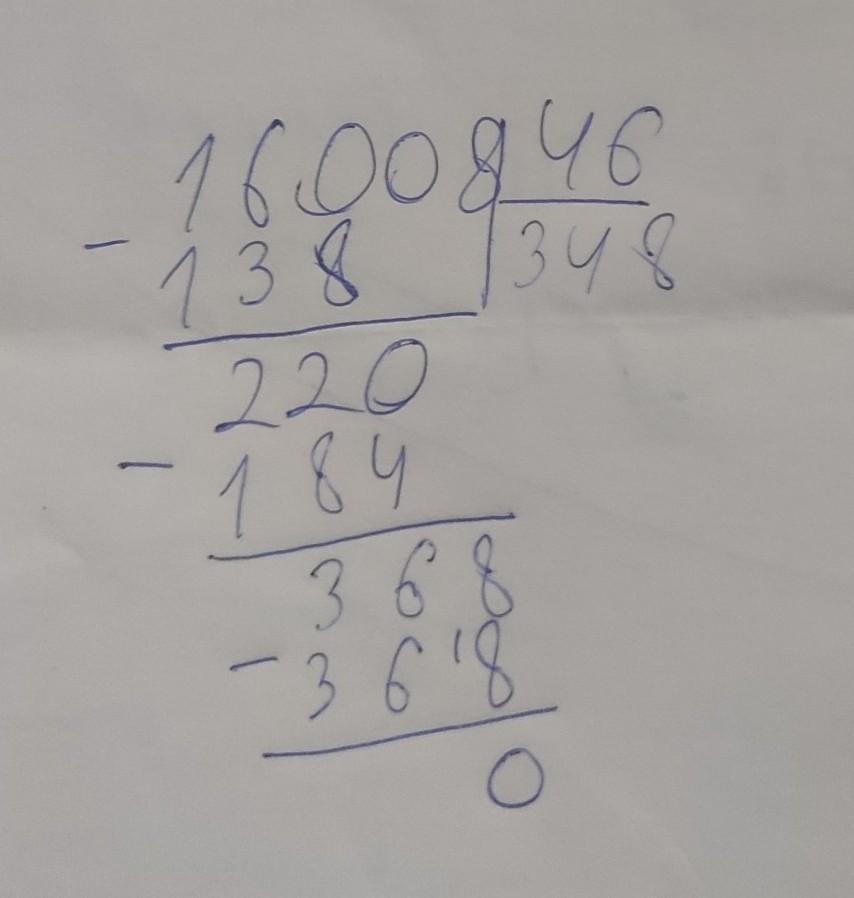 16008 46
- 138 348
220
- 184
368
- 368
0